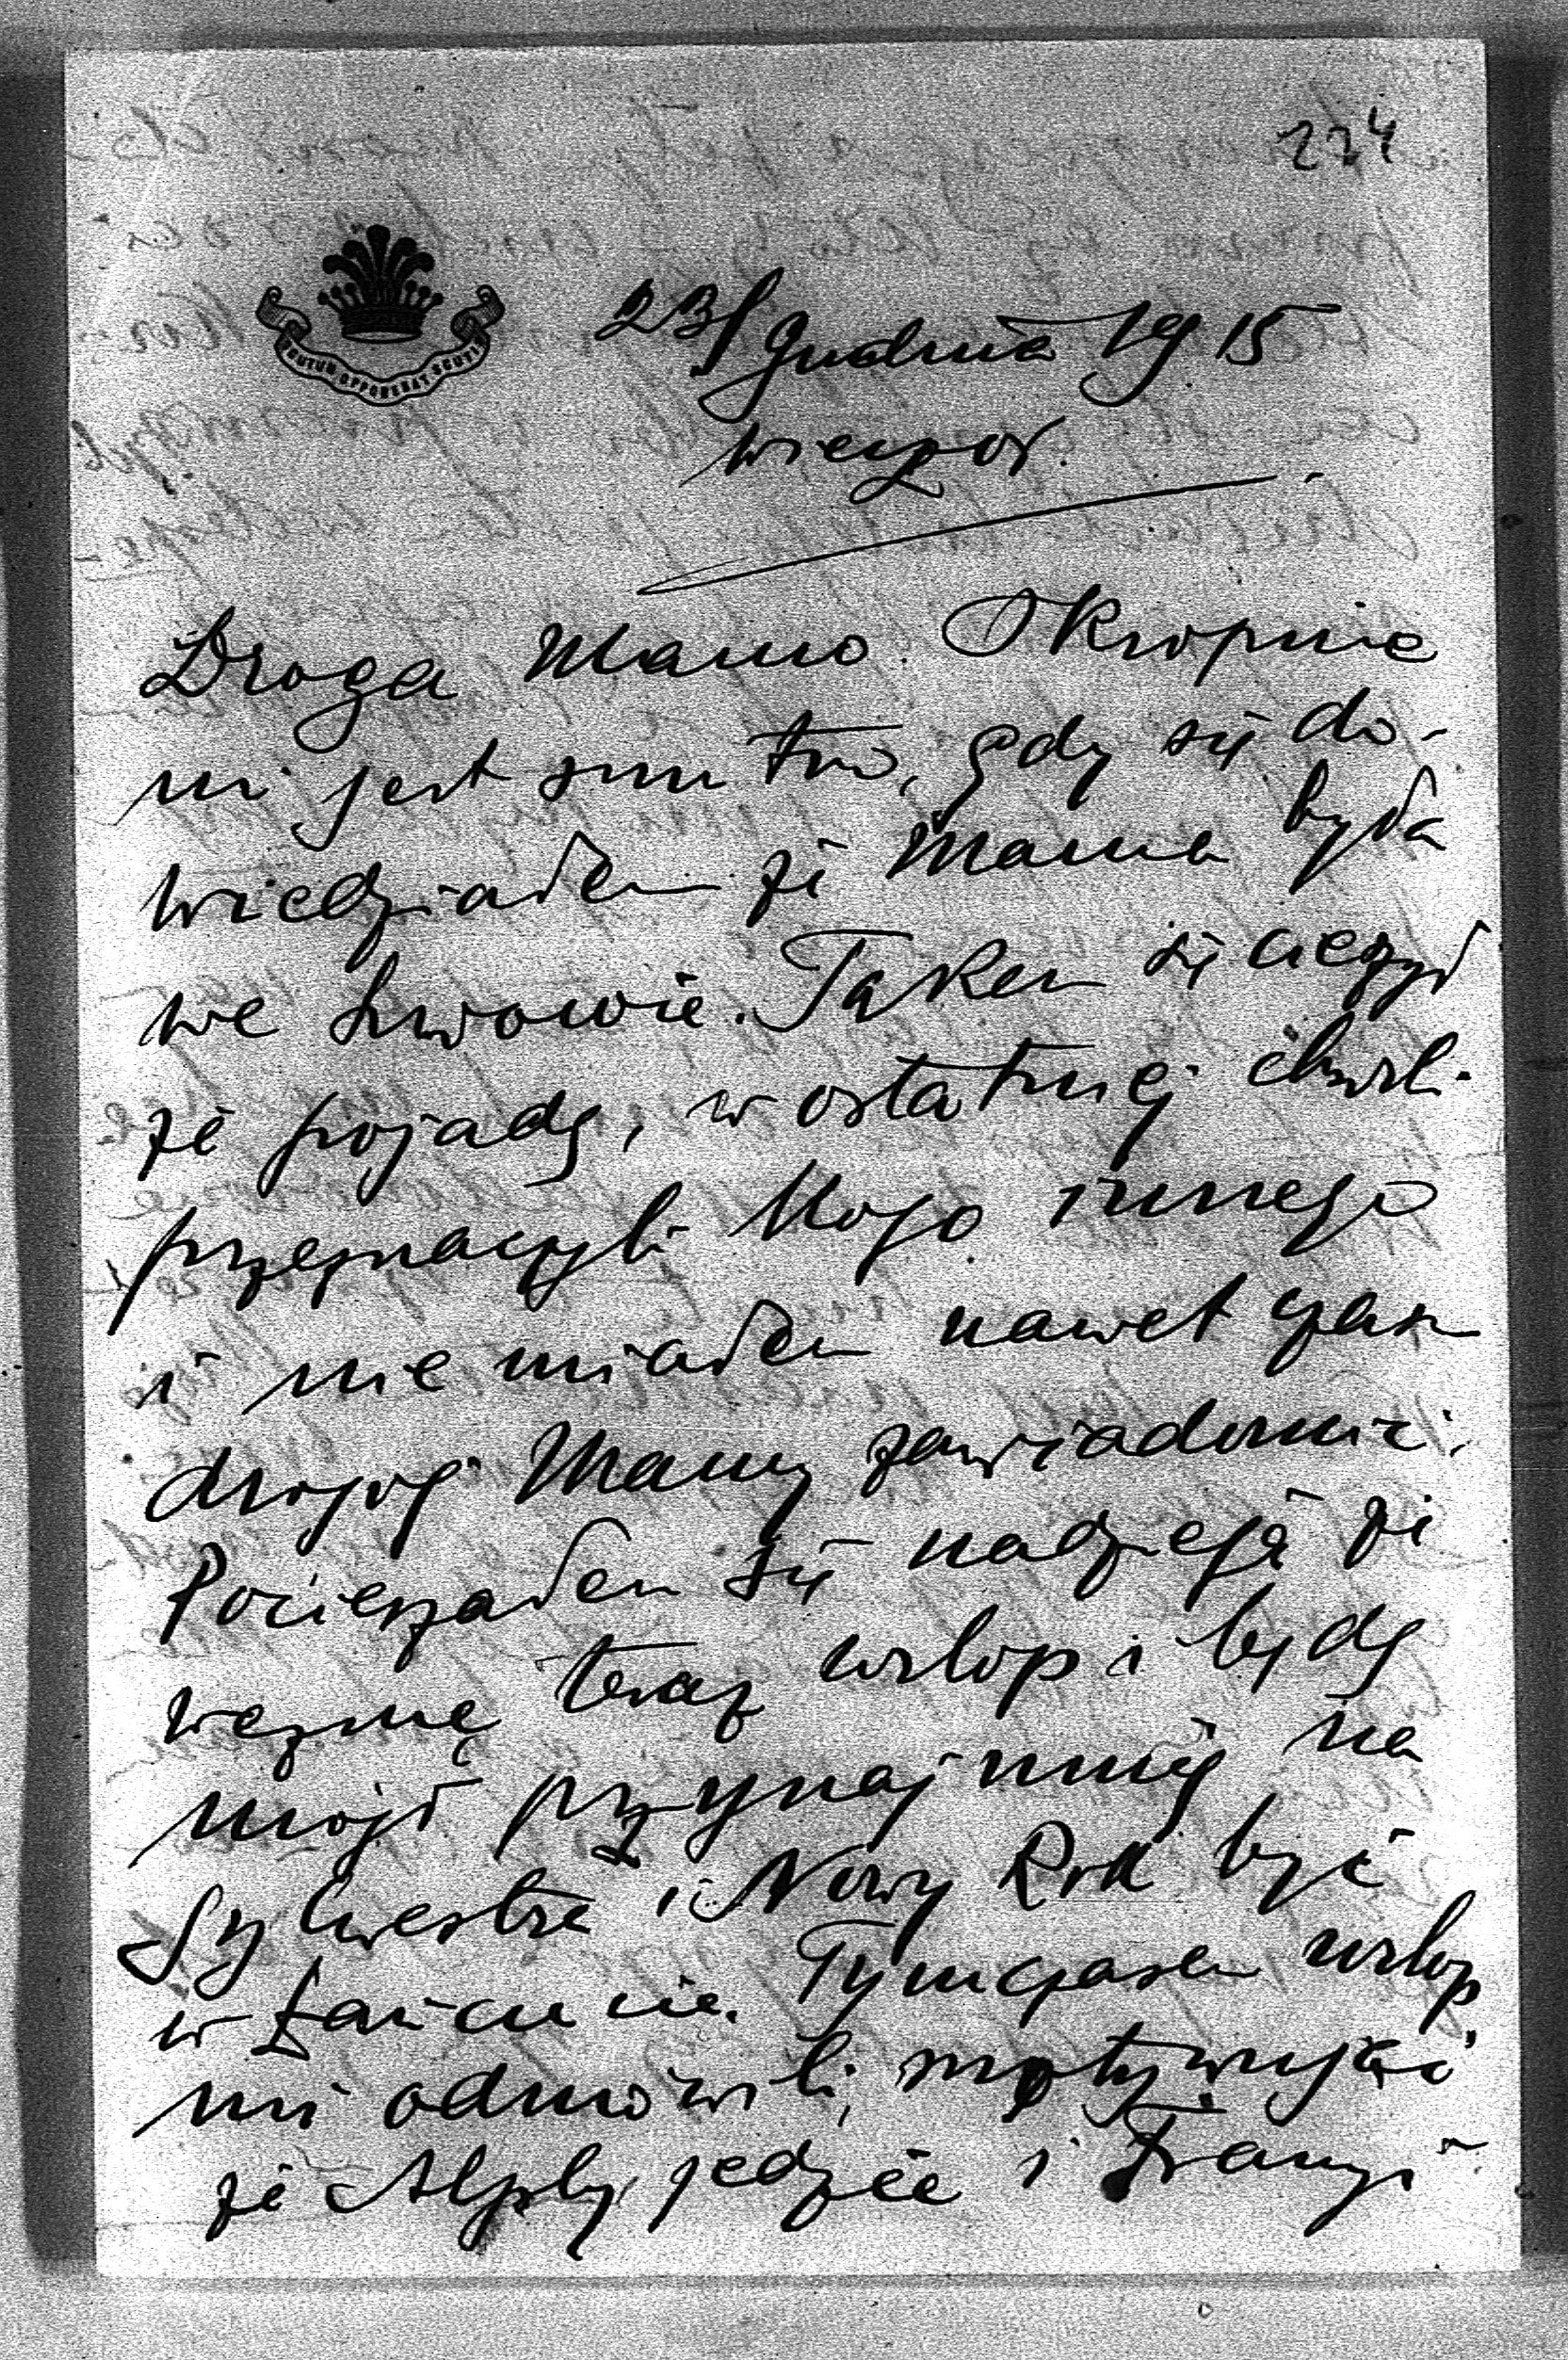 274
SCUTUM OPPONEBAT SCUTIS
23/Grudnia 1915
wieczor.
Droga Mamo. Okropnie
mi jest smutno, gdy się do-
wiedziałem że Mama była
we Lwowie. Takem się cieszył
że pojadę, w ostatniej chwili
przeznaczyli kogo innego
i nie miałem nawet czasu
drogiej Mamy zawiadomić.
Pocieszałem się nadzieją że
wezmę teraz urlop i będę
mógł przynajmniej na
Sylwestra i Nowy Rok być
w Łańcucie. Tymczasem urlop
mi odmówili, motywując
że jedzie i